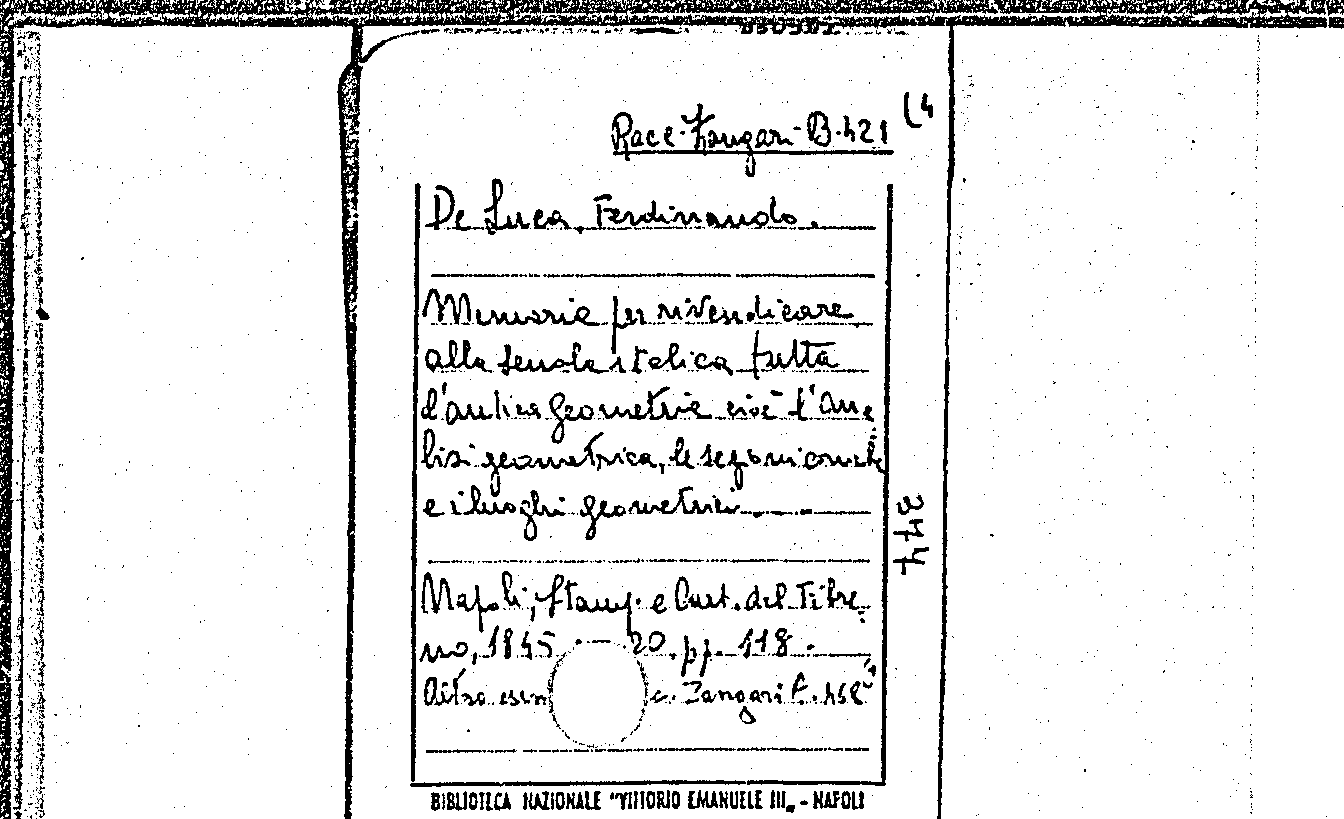 Racc. Zangari B. 421 (4
De Luca, Ferdinando.
Memoria per rivendicare
alla scuola italica tutta
l'antica geometria cioè l'ana-
lisi geometrica, le sezioni coniche
e i luoghi geometrici.
374
Napoli, Stamp. e Cart. del Fibre-
no, 1845 20. pp. 118.
Altro esem c. Zangari
BIBLIOTECA NAZIONALE "VITTORIO EMANUELE III„ - NAPOLI